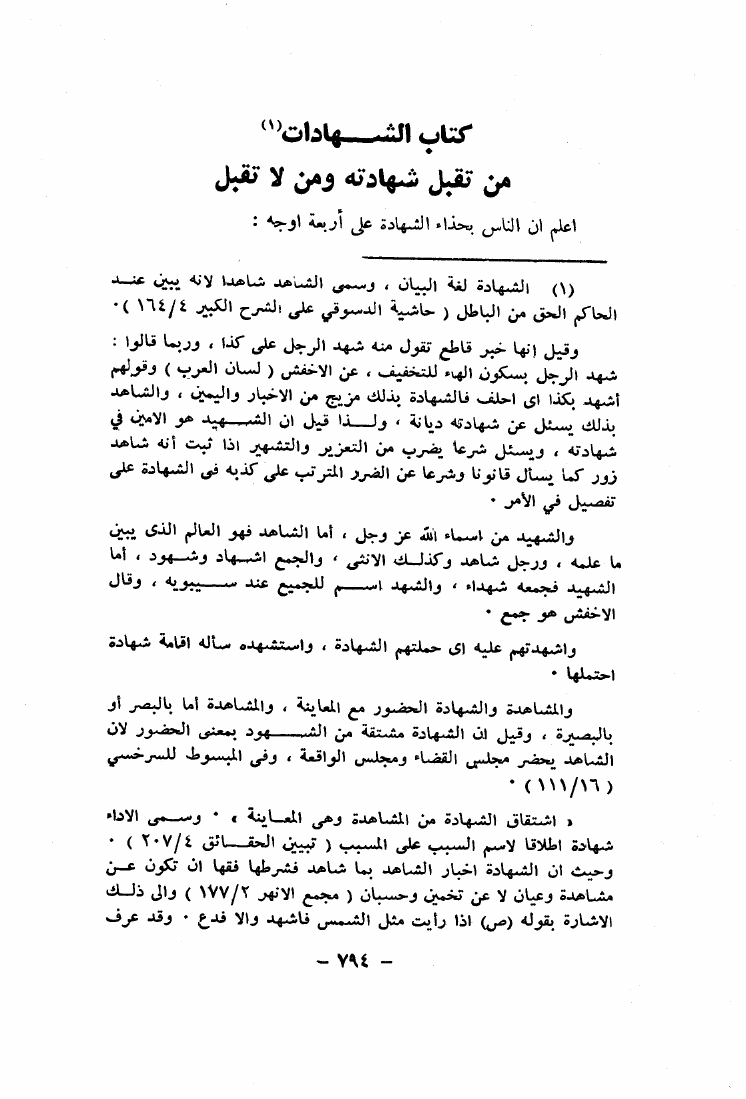 كتاب الشهادات (١)
من تقبل شهادته ومن لا تقبل
اعلم ان الناس بحذاء الشهادة على أربعة اوجه :
(١) الشهادة لغة البيان ، وسمى الشاهد شاهدا لانه يبين عند
الحاكم الحق من الباطل ( حاشية الدسوقي على الشرح الكبير ١٦٤/٤ ) ٠
وقيل إنها خبر قاطع تقول منه شهد الرجل على كذا ، وربما قالوا :
شهد الرجل بسكون الهاء للتخفيف ، عن الاخفش ( لسان العرب ) وقولهم
أشهد بكذا اى احلف فالشهادة بذلك مزيج من الاخبار واليمين ، والشاهد
بذلك يسئل عن شهادته ديانة ، ولذا قيل ان الشهيد هو الامين في
شهادته ، ويسئل شرعا يضرب من التعزير والتشهير اذا ثبت أنه شاهد
زور كما يسأل قانونا وشرعا عن الضرر المترتب على كذبه فى الشهادة على
تفصيل في الأمر ٠
والشهيد من اسماء الله عز وجل ، أما الشاهد فهو العالم الذى يبين
ما علمه ، ورجل شاهد وكذلك الانثى ، والجمع اشهاد وشهود ، أما
الشهيد فجمعه شهداء ، والشهد اسم للجميع عند سيبويه ، وقال
الاخفش هو جمع ٠
واشهدتهم عليه اى حملتهم الشهادة ، واستشهده سأله اقامة شهادة
احتملها ٠
والمشاهدة والشهادة الحضور مع المعاينة ، والمشاهدة أما بالبصر أو
بالبصيرة ، وقيل ان الشهادة مشتقة من الشهود بمعنى الحضور لان
الشاهد يحضر مجلس القضاء ومجلس الواقعة ، وفى المبسوط للسرخسي
( ١١١/١٦ ) ٠
« اشتقاق الشهادة من المشاهدة وهى المعاينة » ٠ وسمى الاداء
شهادة اطلاقا لاسم السبب على المسبب ( تبيين الحقائق ٢٠٧/٤ ) ٠
وحيث ان الشهادة اخبار الشاهد بما شاهد فشرطها فقها ان تكون عن
مشاهدة وعيان لا عن تخمين وحسبان ( مجمع الانهر ١٧٧/٢ ) والى ذلك
الاشارة بقوله (ص) اذا رأيت مثل الشمس فاشهد والا فدع ٠ وقد عرف
– ٧٩٤ –